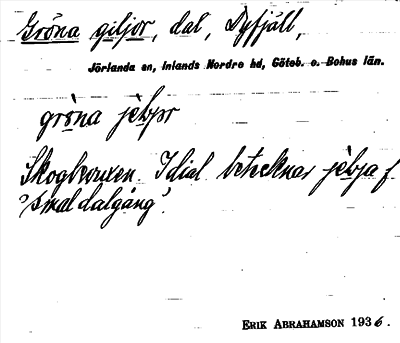 Gröna giljor, dal, Dyfjäll,
Jörlanda sn, Inlands Nordre hd, Göteb. o. Bohus län.
gròna
Skogbevuxen. I dial betecknar f.
'smal dalgång'.
ERIK ABRAHAMSON 1936.